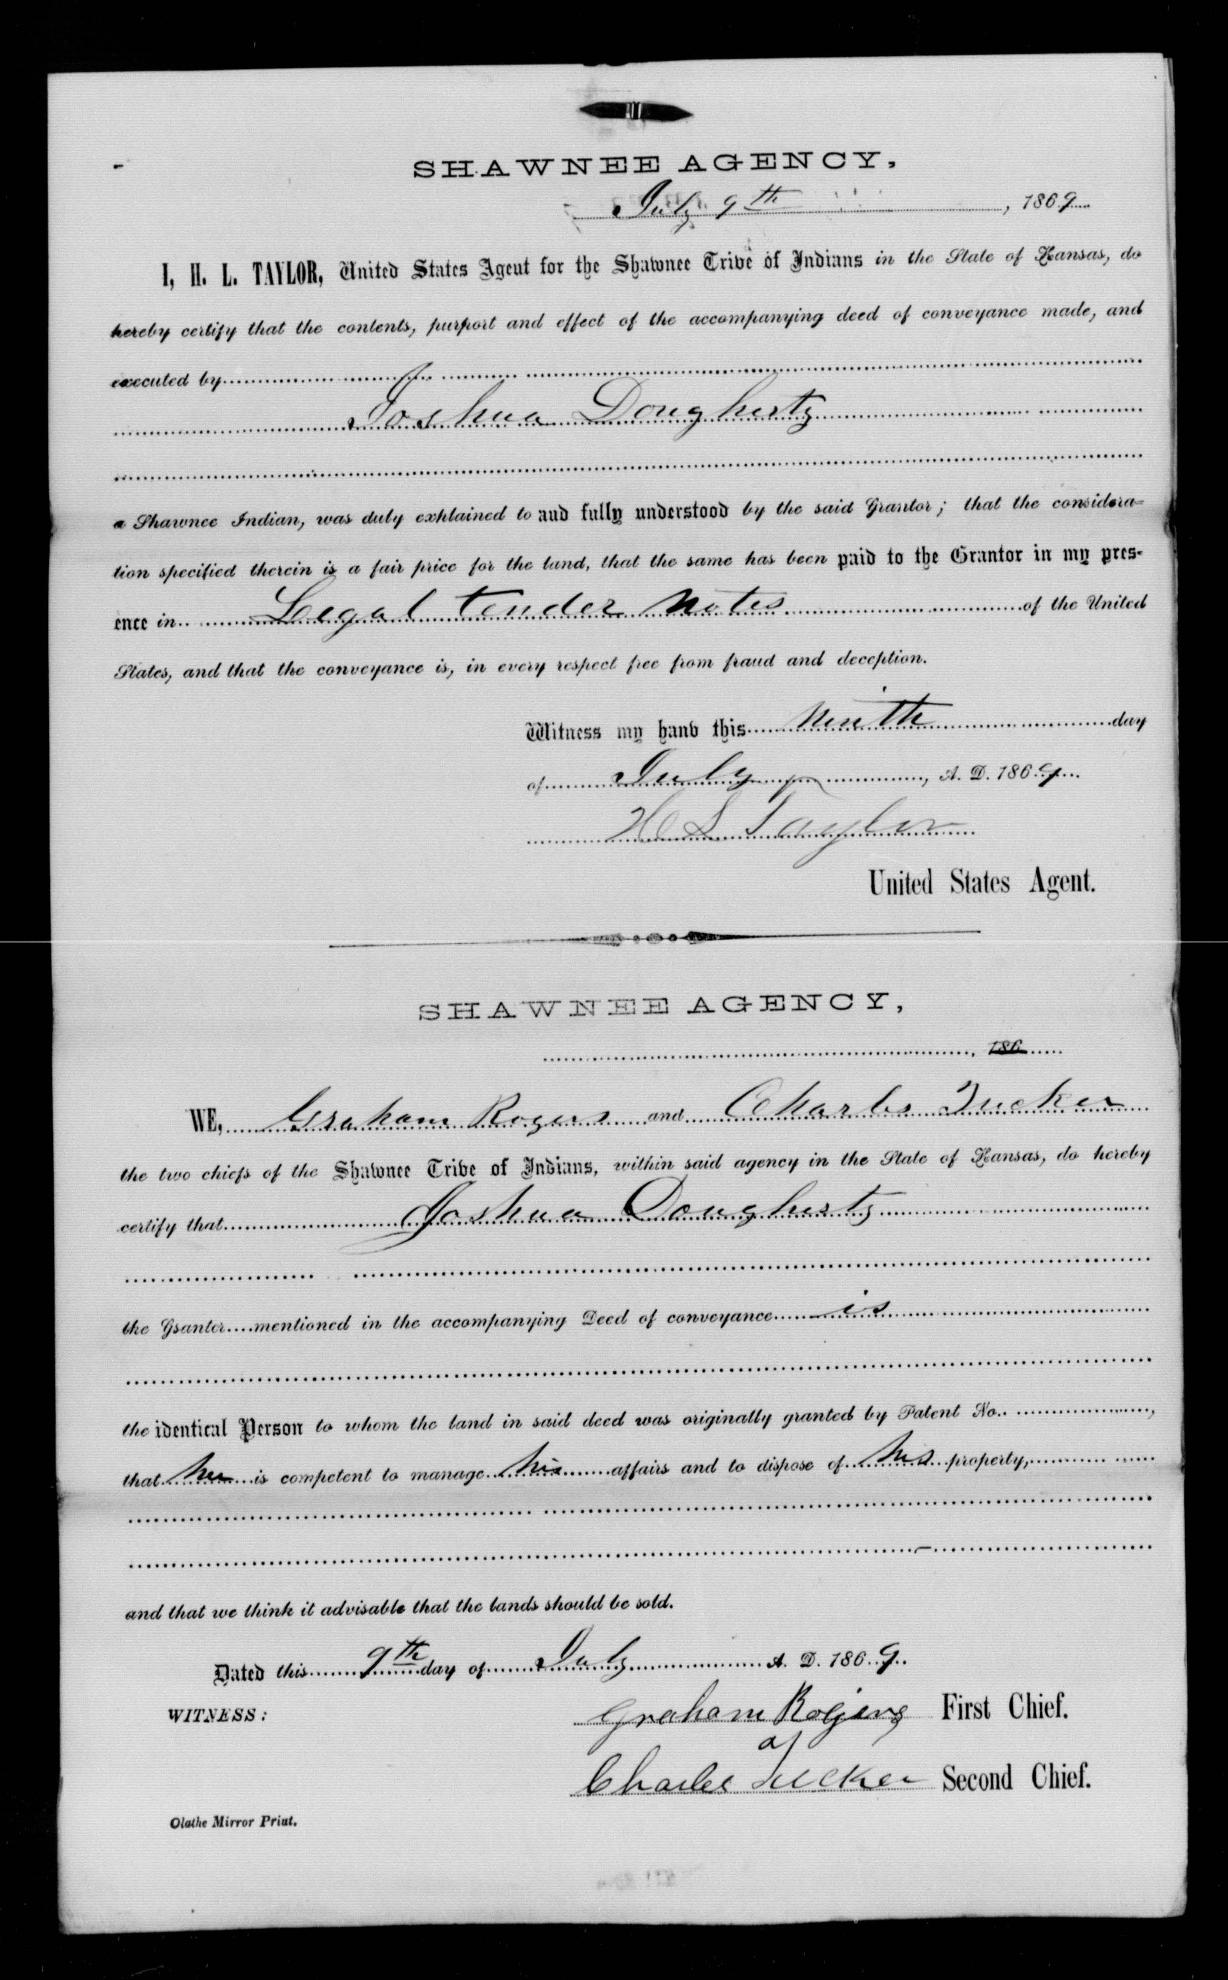 SHAWNEE AGENCY,
July 9th, 1869
I, H. L. TAYLOR, United States Agent for the Shawnee Tribe of Indians in the State of Kansas, do
hereby certify that the contents, purport and effect of the accompanying deed of conveyance made, and
executed by
Joshua Dougherty
a Shawnee Indian, was duly explained to and fully understood by the said Grantor; that the considera-
tion specified therein is a fair price for the land, that the same has been paid to the Grantor in my pres-
ence in Legal tender notes of the United
States, and that the conveyance is, in every respect free from fraud and deception.
Witness my hand this Ninth day
of July, A. D. 1869
H L Taylor
United States Agent.
SHAWNEE AGENCY,
, 186
WE, Graham Rogers and Charles Tucker
the two chiefs of the Shawnee Tribe of Indians, within said agency in the State of Kansas, do hereby
certify that Joshua Dougherty
the Grantor mentioned in the accompanying Deed of conveyance is
the identical Person to whom the land in said deed was originally granted by Patent No. ,
that he is competent to manage his affairs and to dispose of his property,
and that we think it advisable that the lands should be sold.
Dated this 9th day of July A. D. 1869.
WITNESS:
Graham Rogers First Chief.
Charles Tucker Second Chief.
Olathe Mirror Print.